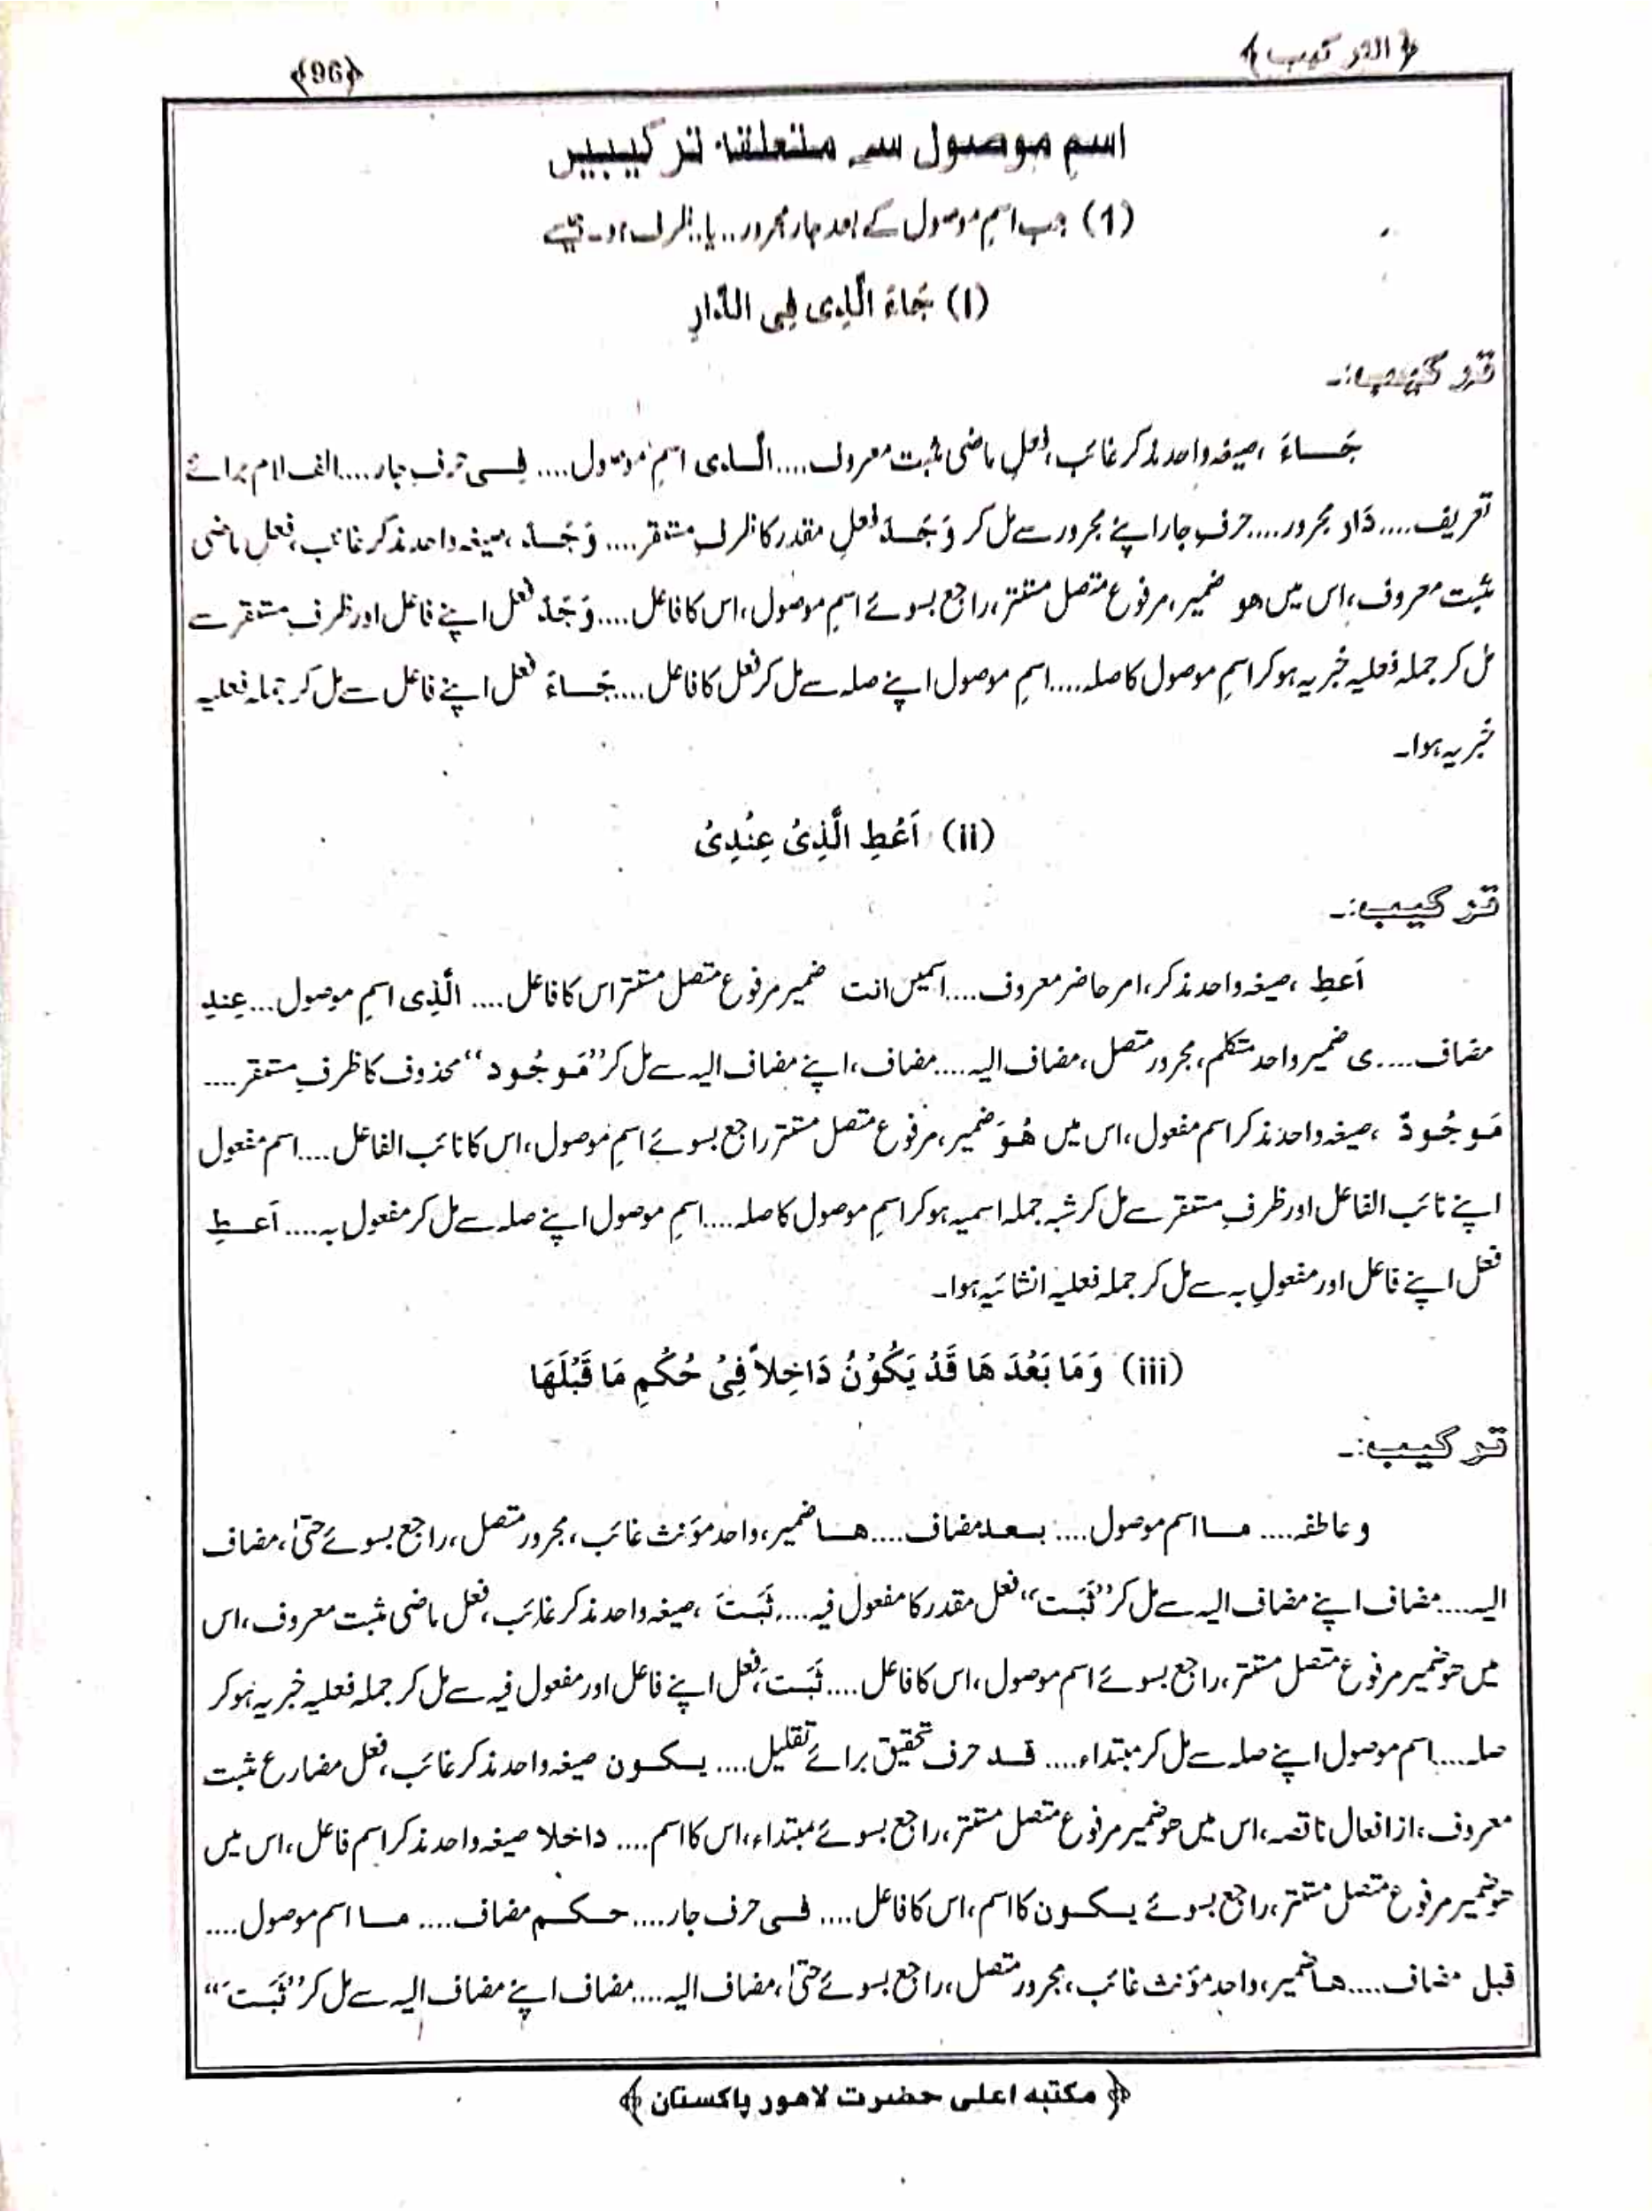 ﴿التركيب﴾
﴿96﴾
اسمِ موصول سے متعلقہ ترکیبیں
(1) جب اسمِ موصول کے بعد جار مجرور..یا..ظرف ہو۔ جیسے
(I) جَاءَ الَّذِی فِی الدَّارِ
ترکیب:۔
جَاءَ ،صیغہ واحد مذکر غائب ،فعلِ ماضی مثبت معروف....الَّذی اسمِ موصول.... فِی حرفِ جار....الف لام برائے
تعریف....دَار مجرور....حرفِ جار اپنے مجرور سے مل کر وَجَدَ فعلِ مقدر کا ظرفِ مستقر.... وَجَدَ ،صیغہ واحد مذکر غائب ،فعل ماضی
مثبت معروف،اس میں هو ضمیر،مرفوع متصل مستتر،راجع بسوئے اسمِ موصول،اس کا فاعل....وَجَدَ فعل اپنے فاعل اور ظرفِ مستقر سے
مل کر جملہ فعلیہ خبریہ ہو کر اسمِ موصول کا صلہ....اسمِ موصول اپنے صلہ سے مل کر فعل کا فاعل....جَاءَ فعل اپنے فاعل سے مل کر جملہ فعلیہ
خبریہ ہوا۔
(ii) اَعْطِ الَّذِیْ عِنْدِیْ
ترکیب:۔
اَعطِ ،صیغہ واحد مذکر،امر حاضر معروف....اسمیں انت ضمیر مرفوع متصل مستتر اس کا فاعل.... الَّذِی اسمِ موصول...عِندِ
مضاف....ی ضمیر واحد متکلم،مجرور متصل،مضاف الیہ....مضاف،اپنے مضاف الیہ سے مل کر ’’مَوجُود‘‘ محذوف کا ظرفِ مستقر....
مَوجُودٌ ،صیغہ واحد مذکر اسم مفعول،اس میں هُوَ ضمیر،مرفوع متصل مستتر راجع بسوئے اسمِ موصول،اس کا نائب الفاعل....اسم مفعول
اپنے نائب الفاعل اور ظرفِ مستقر سے مل کر شبہ جملہ اسمیہ ہو کر اسمِ موصول کا صلہ....اسمِ موصول اپنے صلہ سے مل کر مفعول بہ....اَعطِ
فعل اپنے فاعل اور مفعولِ بہ سے مل کر جملہ فعلیہ انشائیہ ہوا۔
(iii) وَمَا بَعْدَ هَا قَدْ يَكُوْنُ دَاخِلاً فِيْ حُكْمِ مَا قَبْلَهَا
ترکیب:۔
و عاطفہ.... ما اسم موصول.... بعد مضاف....ها ضمیر،واحد مؤنث غائب،مجرور متصل،راجع بسوئے حتیٰ،مضاف
الیہ....مضاف اپنے مضاف الیہ سے مل کر ’’ثَبَت‘‘ فعل مقدر کا مفعول فیہ....ثَبَتَ ،صیغہ واحد مذکر غائب،فعل ماضی مثبت معروف،اس
میں ھو ضمیر مرفوع متصل مستتر،راجع بسوئے اسم موصول،اس کا فاعل....ثَبَتَ،فعل اپنے فاعل اور مفعول فیہ سے مل کر جملہ فعلیہ خبریہ ہو کر
صلہ....اسم موصول اپنے صلہ سے مل کر مبتداء.... قد حرف تحقیق برائے تقلیل.... یکون صیغہ واحد مذکر غائب،فعل مضارع مثبت
معروف،از افعال ناقصہ،اس میں ھو ضمیر مرفوع متصل مستتر،راجع بسوئے مبتداء،اس کا اسم.... داخلا صیغہ واحد مذکر اسم فاعل،اس میں
ھو ضمیر مرفوع متصل مستتر،راجع بسوئے یکون کا اسم،اس کا فاعل.... فی حرف جار....حکم مضاف.... ما اسم موصول....
قبل مضاف....ها ضمیر،واحد مؤنث غائب،مجرور متصل،راجع بسوئے حتیٰ،مضاف الیہ....مضاف اپنے مضاف الیہ سے مل کر ’’ثَبَتَ‘‘
﴿مکتبه اعلی حضرت لاهور پاکستان﴾